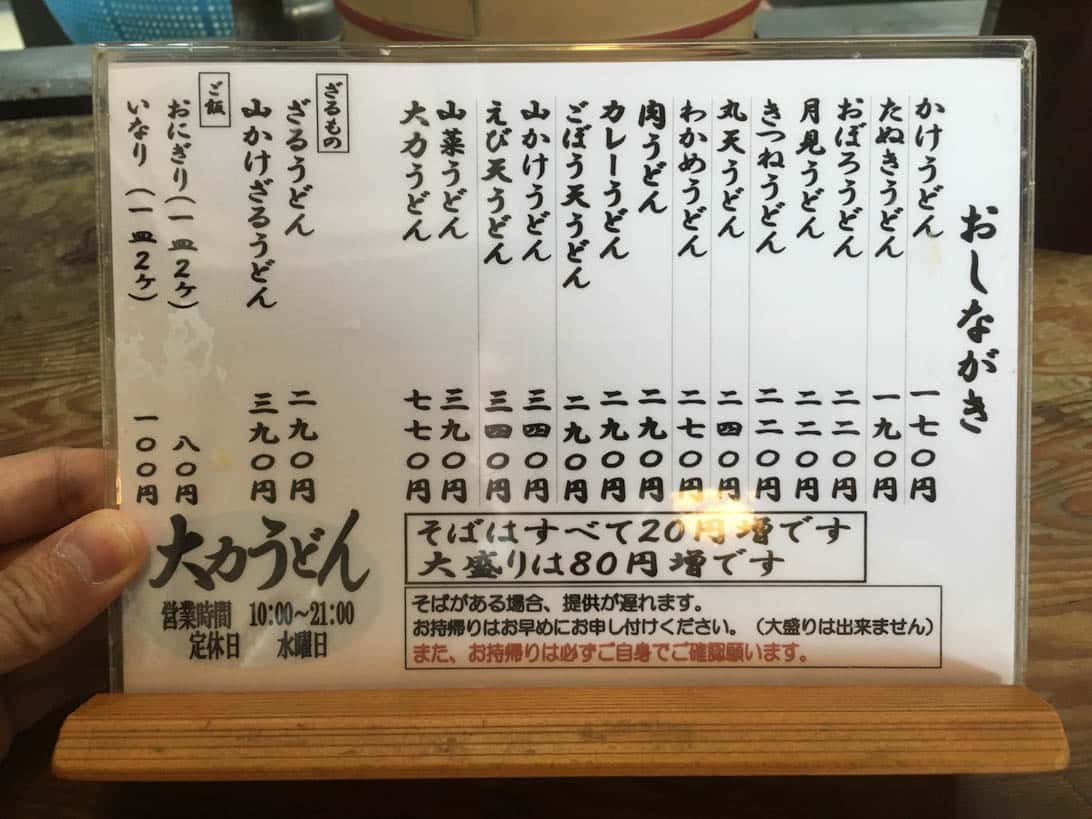 おしながき
かけうどん 一七〇円
たぬきうどん 一九〇円
おぼろうどん 二二〇円
月見うどん 二二〇円
きつねうどん 二二〇円
丸天うどん 二四〇円
わかめうどん 二七〇円
肉うどん 二九〇円
カレーうどん 二九〇円
ごぼう天うどん 二九〇円
山かけうどん 三四〇円
えび天うどん 三四〇円
山菜うどん 三九〇円
大力うどん 七七〇円
ざるもの
ざるうどん 二九〇円
山かけざるうどん 三九〇円
ご飯
おにぎり(一皿2ヶ) 八〇円
いなり(一皿2ヶ) 一〇〇円
そばはすべて20円増です
大盛りは80円増です
そばがある場合、提供が遅れます。
お持帰りはお早めにお申し付けください。(大盛りは出来ません)
また、お持帰りは必ずご自身でご確認願います。
大力うどん
営業時間 10:00~21:00
定休日 水曜日